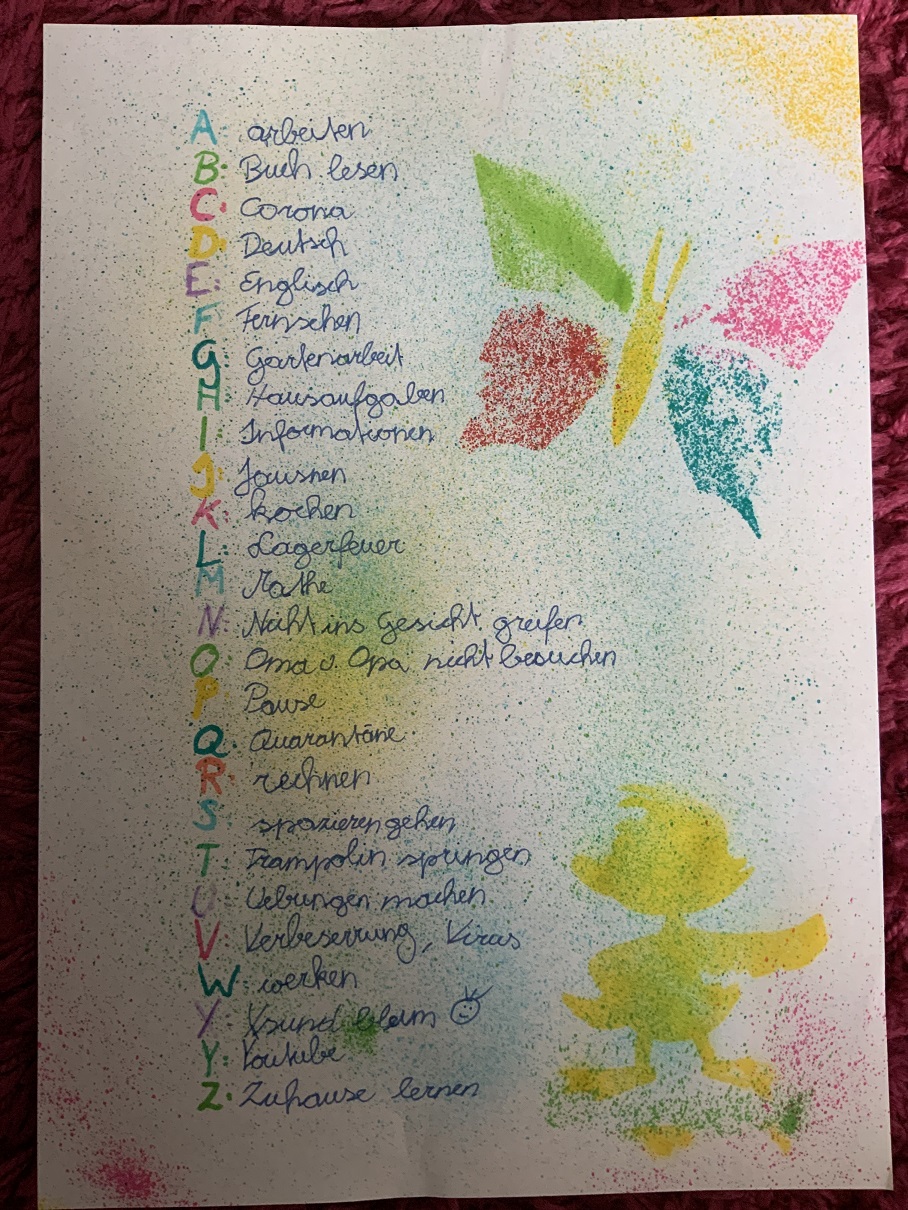 A: arbeiten
B: Buch lesen
C: Corona
D: Deutsch
E: Englisch
F: Fernsehen
G: Gartenarbeit
H: Hausaufgaben
I: Informationen
J: Jausnen
K: kochen
L: Lagerfeuer
M: Mathe
N: Nicht ins Gesicht greifen
O: Oma u. Opa nicht besuchen
P: Pause
Q: Quarantäne
R: rechnen
S: spazieren gehen
T: Trampolin springen
U: Uebungen machen
V: Verbesserung, Virus
W: werken
Y: Xsund bleim
Y: Youtube
Z: Zuhause lernen